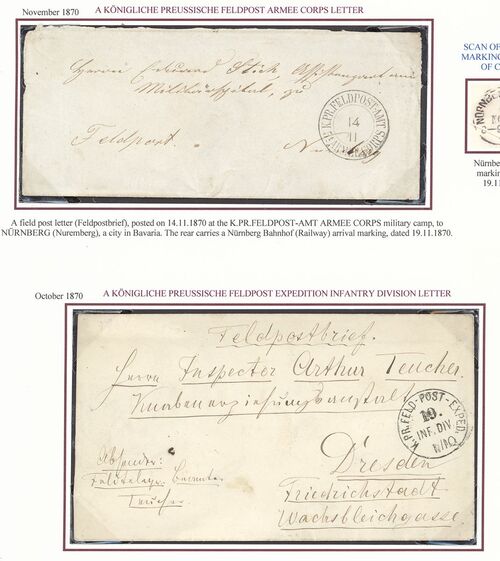 November 1870 A KÖNIGLICHE PREUSSISCHE FELDPOST ARMEE CORPS LETTER
SCAN OF
MARKING
OF C
Herrn Eduard
Militairspital, zu
Feldpost.
K.PR.FELDPOST-AMT
14
11
NÜRNBE
A field post letter (Feldpostbrief), posted on 14.11.1870 at the K.PR.FELDPOST-AMT ARMEE CORPS military camp, to
NÜRNBERG (Nuremberg), a city in Bavaria. The rear carries a Nürnberg Bahnhof (Railway) arrival marking, dated 19.11.1870.
Nürnbe
markin
19.11
October 1870 A KÖNIGLICHE PREUSSISCHE FELDPOST EXPEDITION INFANTRY DIVISION LETTER
Feldpostbrief.
Herrn Inspector Arthur Teucher.
Knabenerziehungsanstalt
K.PR.FELD-POST-EXPED.
19.
INF.DIV
Absender:
Teucher
Dresden
Friedrichstadt
Wachsbleichgasse.